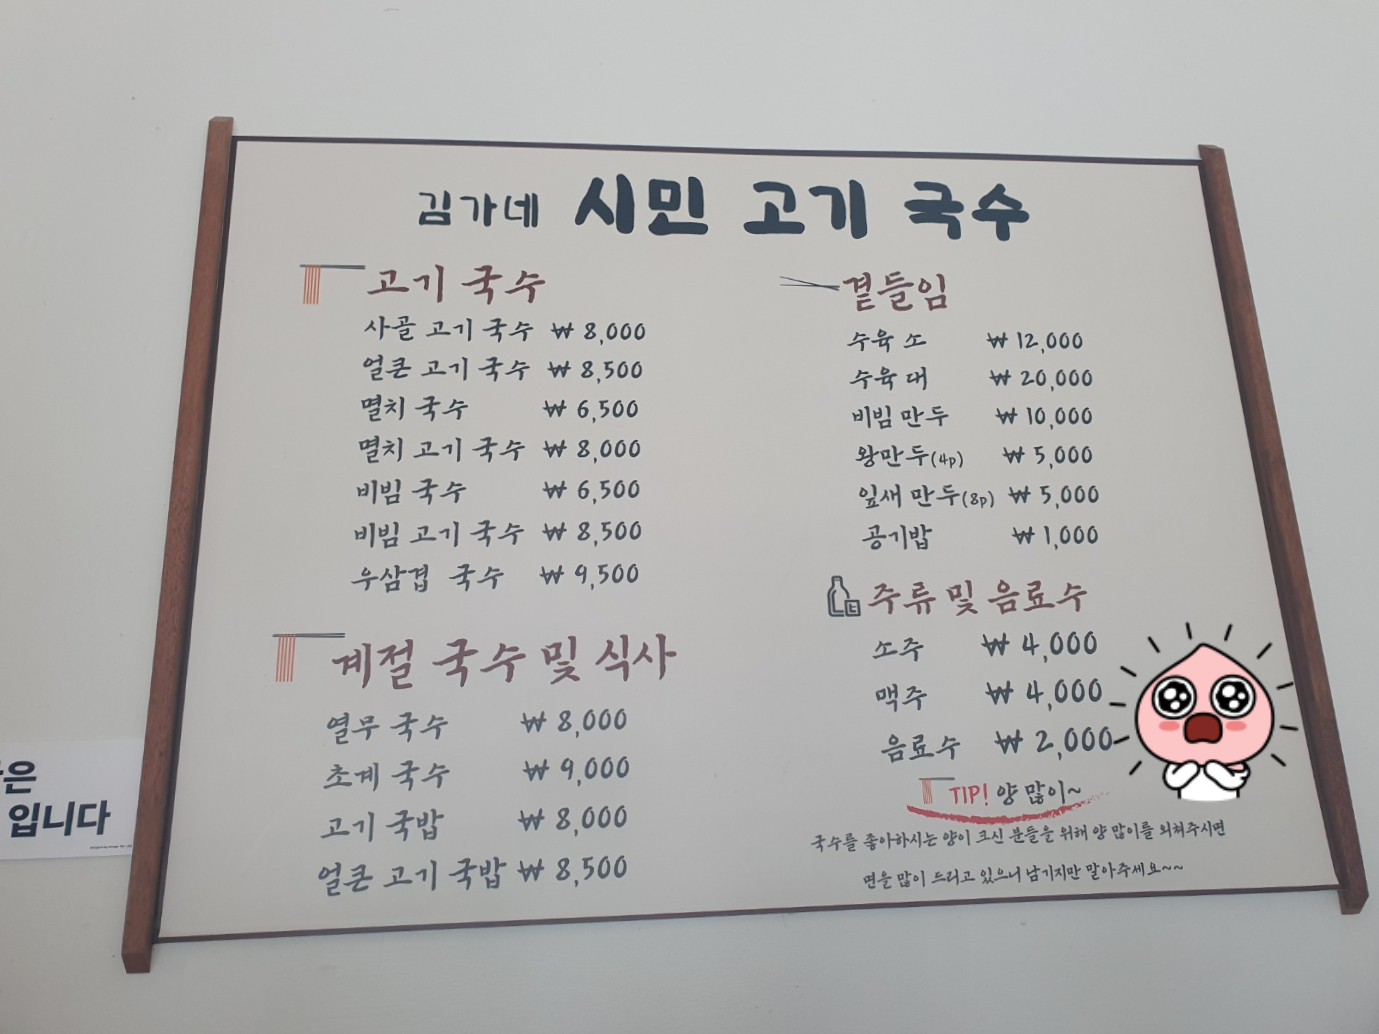 김가네 시민 고기 국수
고기 국수
사골 고기 국수 ₩ 8,000
얼큰 고기 국수 ₩ 8,500
멸치 국수 ₩ 6,500
멸치 고기 국수 ₩ 8,000
비빔 국수 ₩ 6,500
비빔 고기 국수 ₩ 8,500
우삼겹 국수 ₩ 9,500
계절 국수 및 식사
열무 국수 ₩ 8,000
초계 국수 ₩ 9,000
고기 국밥 ₩ 8,000
얼큰 고기 국밥 ₩ 8,500
곁들임
수육 소 ₩ 12,000
수육 대 ₩ 20,000
비빔 만두 ₩ 10,000
왕만두(4p) ₩ 5,000
잎새 만두(8p) ₩ 5,000
공기밥 ₩ 1,000
주류 및 음료수
소주 ₩ 4,000
맥주 ₩ 4,000
음료수 ₩ 2,000
TIP! 양 많이~
국수를 좋아하시는 양이 크신 분들을 위해 양 많이를 외쳐주시면
면을 많이 드리고 있으니 남기지만 말아주세요~~
은
입니다